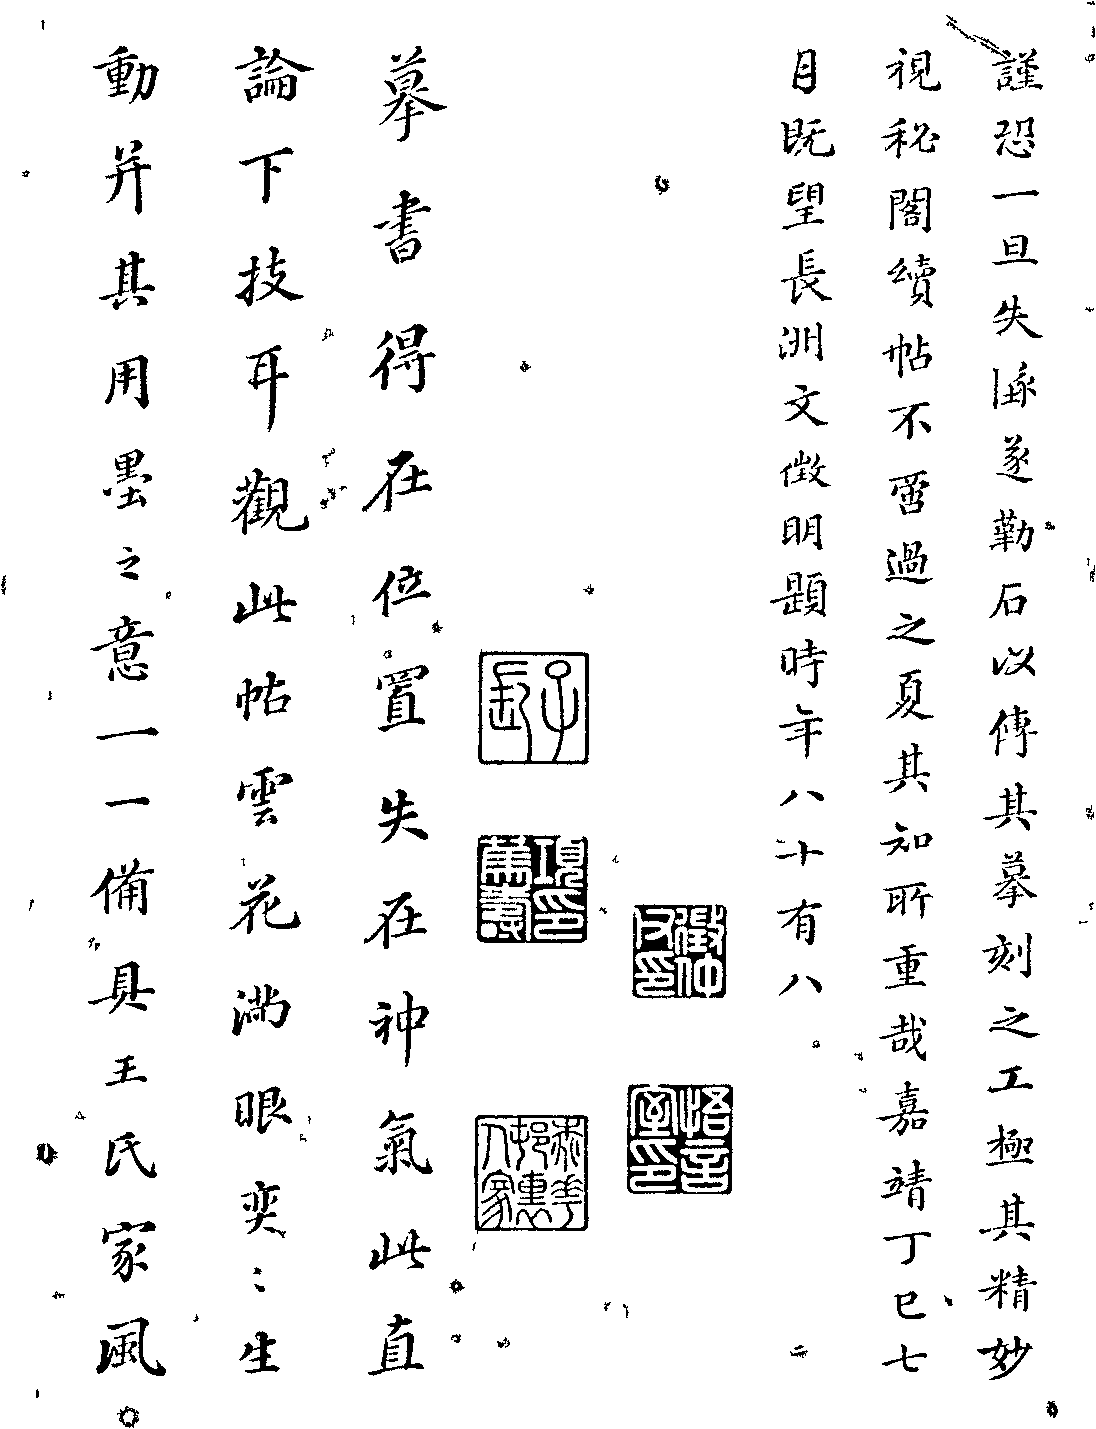 謹恐一旦失墜遂勒石以傳其摹刻之工極其精妙
視秘閣續帖不啻過之夏其知所重哉嘉靖丁巳七
月既望長洲文徵明題時年八十有八
徵仲父印
悟言室印
子長
項篤壽印
桃華邨裏人家
摹書得在位置失在神氣此直
論下技耳觀此帖雲花滿眼奕〻生
動并其用墨之意一一備具王氏家風